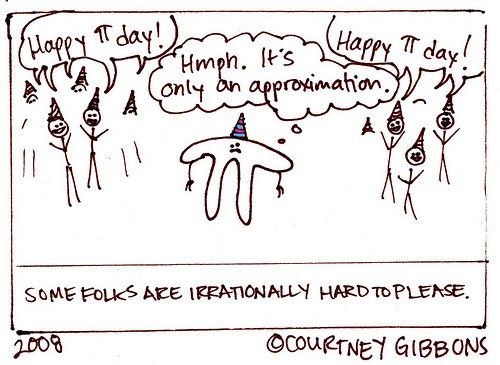 Happy π day!
Hmph. It's
only an approximation.
Happy π day!
SOME FOLKS ARE IRRATIONALLY HARD TO PLEASE.
2008
©COURTNEY GIBBONS